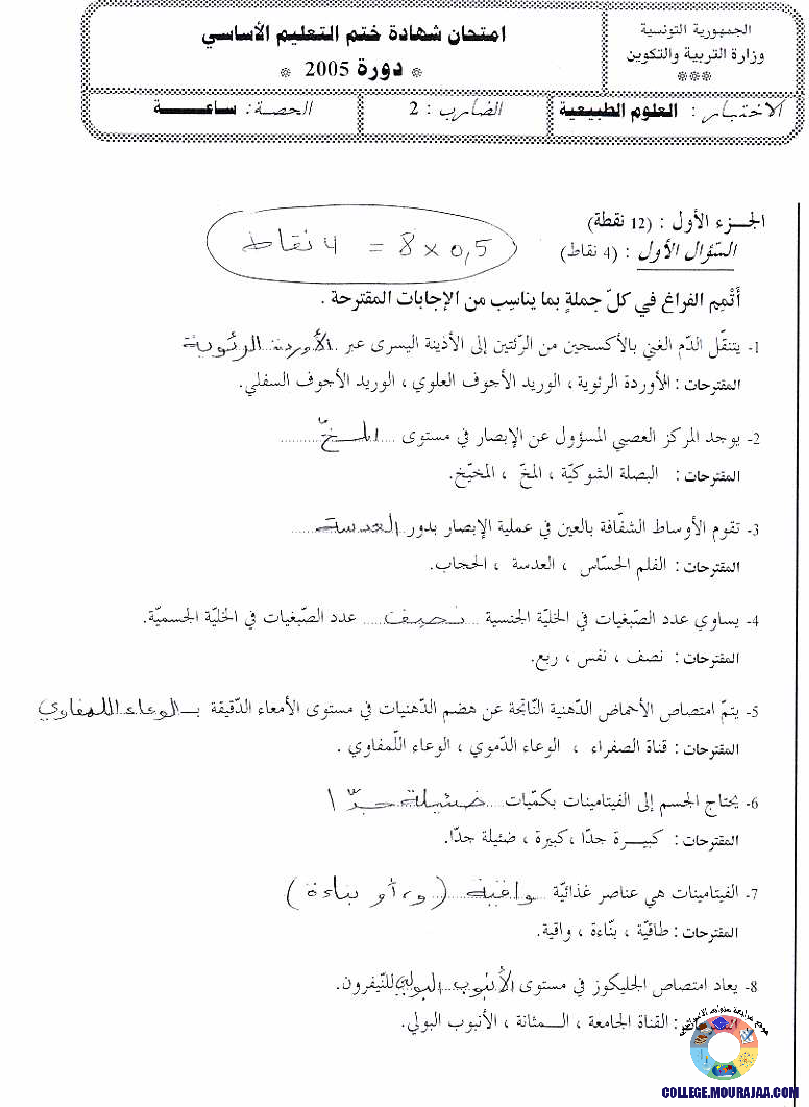 الجمهورية التونسية
وزارة التربية والتكوين
***
امتحان شهادة ختم التعليم الأساسي
* دورة 2005 *
الاختبار : العلوم الطبيعية
الضارب : 2
الحصة : ساعـــة
الجزء الأول : (12 نقطة)
السّؤال الأول : (4 نقاط)
0,5 × 8 = 4 نقاط
أتْمِم الفراغ في كلّ جملةٍ بما يناسِب من الإجابات المقترحة .
1- يتنقّل الدّم الغني بالأكسجين من الرّئتين إلى الأذينة اليسرى عبر الأوردة الرئوية
المقترحات : الأوردة الرئوية ، الوريد الأجوف العلوي ، الوريد الأجوف السفلي.
2- يوجد المركز العصبي المسؤول عن الإبصار في مستوى .... المخّ ..........
المقترحات : البصلة الشوكيّة ، المخّ ، المخيّخ.
3- تقوم الأوساط الشفّافة بالعين في عملية الإبصار بدور العدسة......
المقترحات : الفلم الحسّاس ، العدسة ، الحجاب.
4- يساوي عدد الصّبغيات في الخليّة الجنسية ... نصف ..... عدد الصّبغيات في الخليّة الجسميّة.
المقترحات : نصف ، نفس ، ربع.
5- يتمّ امتصاص الأحماض الدّهنية النّاتجة عن هضم الدّهنيات في مستوى الأمعاء الدّقيقة بـالوعاء اللمفاوي
المقترحات : قناة الصفراء ، الوعاء الدّموي ، الوعاء اللّمفاوي .
6- يحتاج الجسم إلى الفيتامينات بكمّيات..... ضئيلة جدّا
المقترحات : كبيـــرة جدّا ،كبيرة ، ضئيلة جدّا.
7- الفيتامينات هي عناصر غذائيّة .... واقية ...... (و/أو بناءة)
المقترحات : طاقيّة ، بنّاءة ، واقية.
8- يعاد امتصاص الجليكوز في مستوى الأنبوب البولي للنّيفرون.
المقترحات : القناة الجامعة ، المــثانة ، الأنبوب البولي.
COLLEGE.MOURAJAA.COM